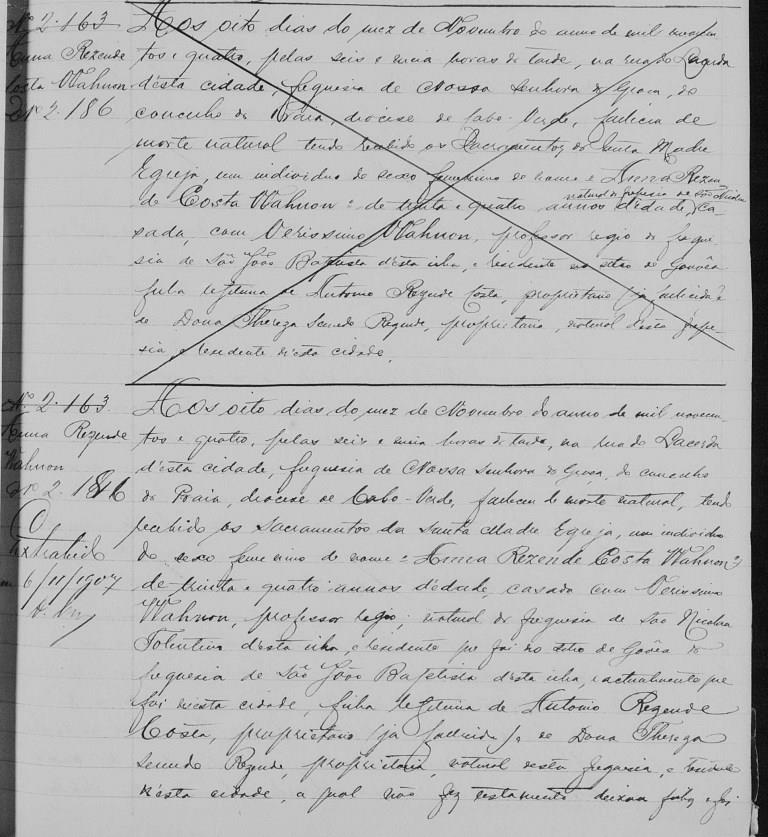 Nº 2.163
Anna Rezende
Costa Wahnon
Nº 2.186
Aos oito dias do mez de Novembro do anno de mil novecen-
tos e quatro, pelas seis e meia horas da tarde, na rua do Lacerda
d'esta cidade, freguesia de Nossa Senhora da Graça, do
concelho da Praia, diocese de Cabo-Verde, falleceu de
morte natural tendo recebido os Sacramentos da Santa Madre
Egreja, um individuo do sexo femenino de nome = Anna Rezen-
de Costa Wahnon = de trinta e quatro annos d'edade, ca-
natural da freguesia de São Nicolau
sada, com Verissimo Wahnon, professor regio da fregue-
sia de São João Baptista d'esta ilha, e residente no sitio de Gouvêa
filha legitima de Antonio Rezende Costa, proprietario (ja fallecido) e
de Dona Thereza Semedo Rezende, proprietaria, natural d'esta fregue-
sia e residente n'esta cidade.
Nº 2.163
Anna Rezende
Wahnon
Nº 2.186
Extrahido
em 6/11/1907
Aos oito dias do mez de Novembro do anno de mil novecen-
tos e quatro, pelas seis e meia horas da tarde, na rua do Lacerda
d'esta cidade, freguesia de Nossa Senhora da Graça, do concelho
da Praia, diocese de Cabo-Verde, falleceu de morte natural, tendo
recebido os Sacramentos da Santa Madre Egreja, um individuo
do sexo femenino de nome = Anna Rezende Costa Wahnon =
de trinta e quatro annos d'edade, casada com Verissimo
Wahnon, professor regio, natural da freguesia de São Nicolau
Tolentino d'esta ilha, e residente que foi no sitio de Gouvêa da
freguesia de São João Baptista d'esta ilha, e actualmente que
foi n'esta cidade, filha legitima de Antonio Rezende
Costa, proprietario (já fallecido), e de Dona Thereza
Semedo Rezende, proprietaria, natural desta freguesia, e residente
n'esta cidade, a qual não fez testamento deixou filhos e foi